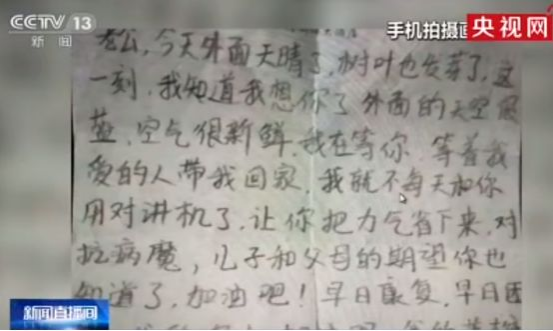 CCTV 13
新闻
手机拍摄画
央视网
老公,今天外面天晴了,树叶也发芽了,这
一刻,我知道我想你了外面的天空很
蓝、空气很新鲜,我在等你,等着我
爱的人带我回家,我就不每天和你
用对讲机了,让你把力气省下来,对
抗病魔,儿子和父母的期望你也
知道了,加油吧!早日康复,早日团
新闻直播间